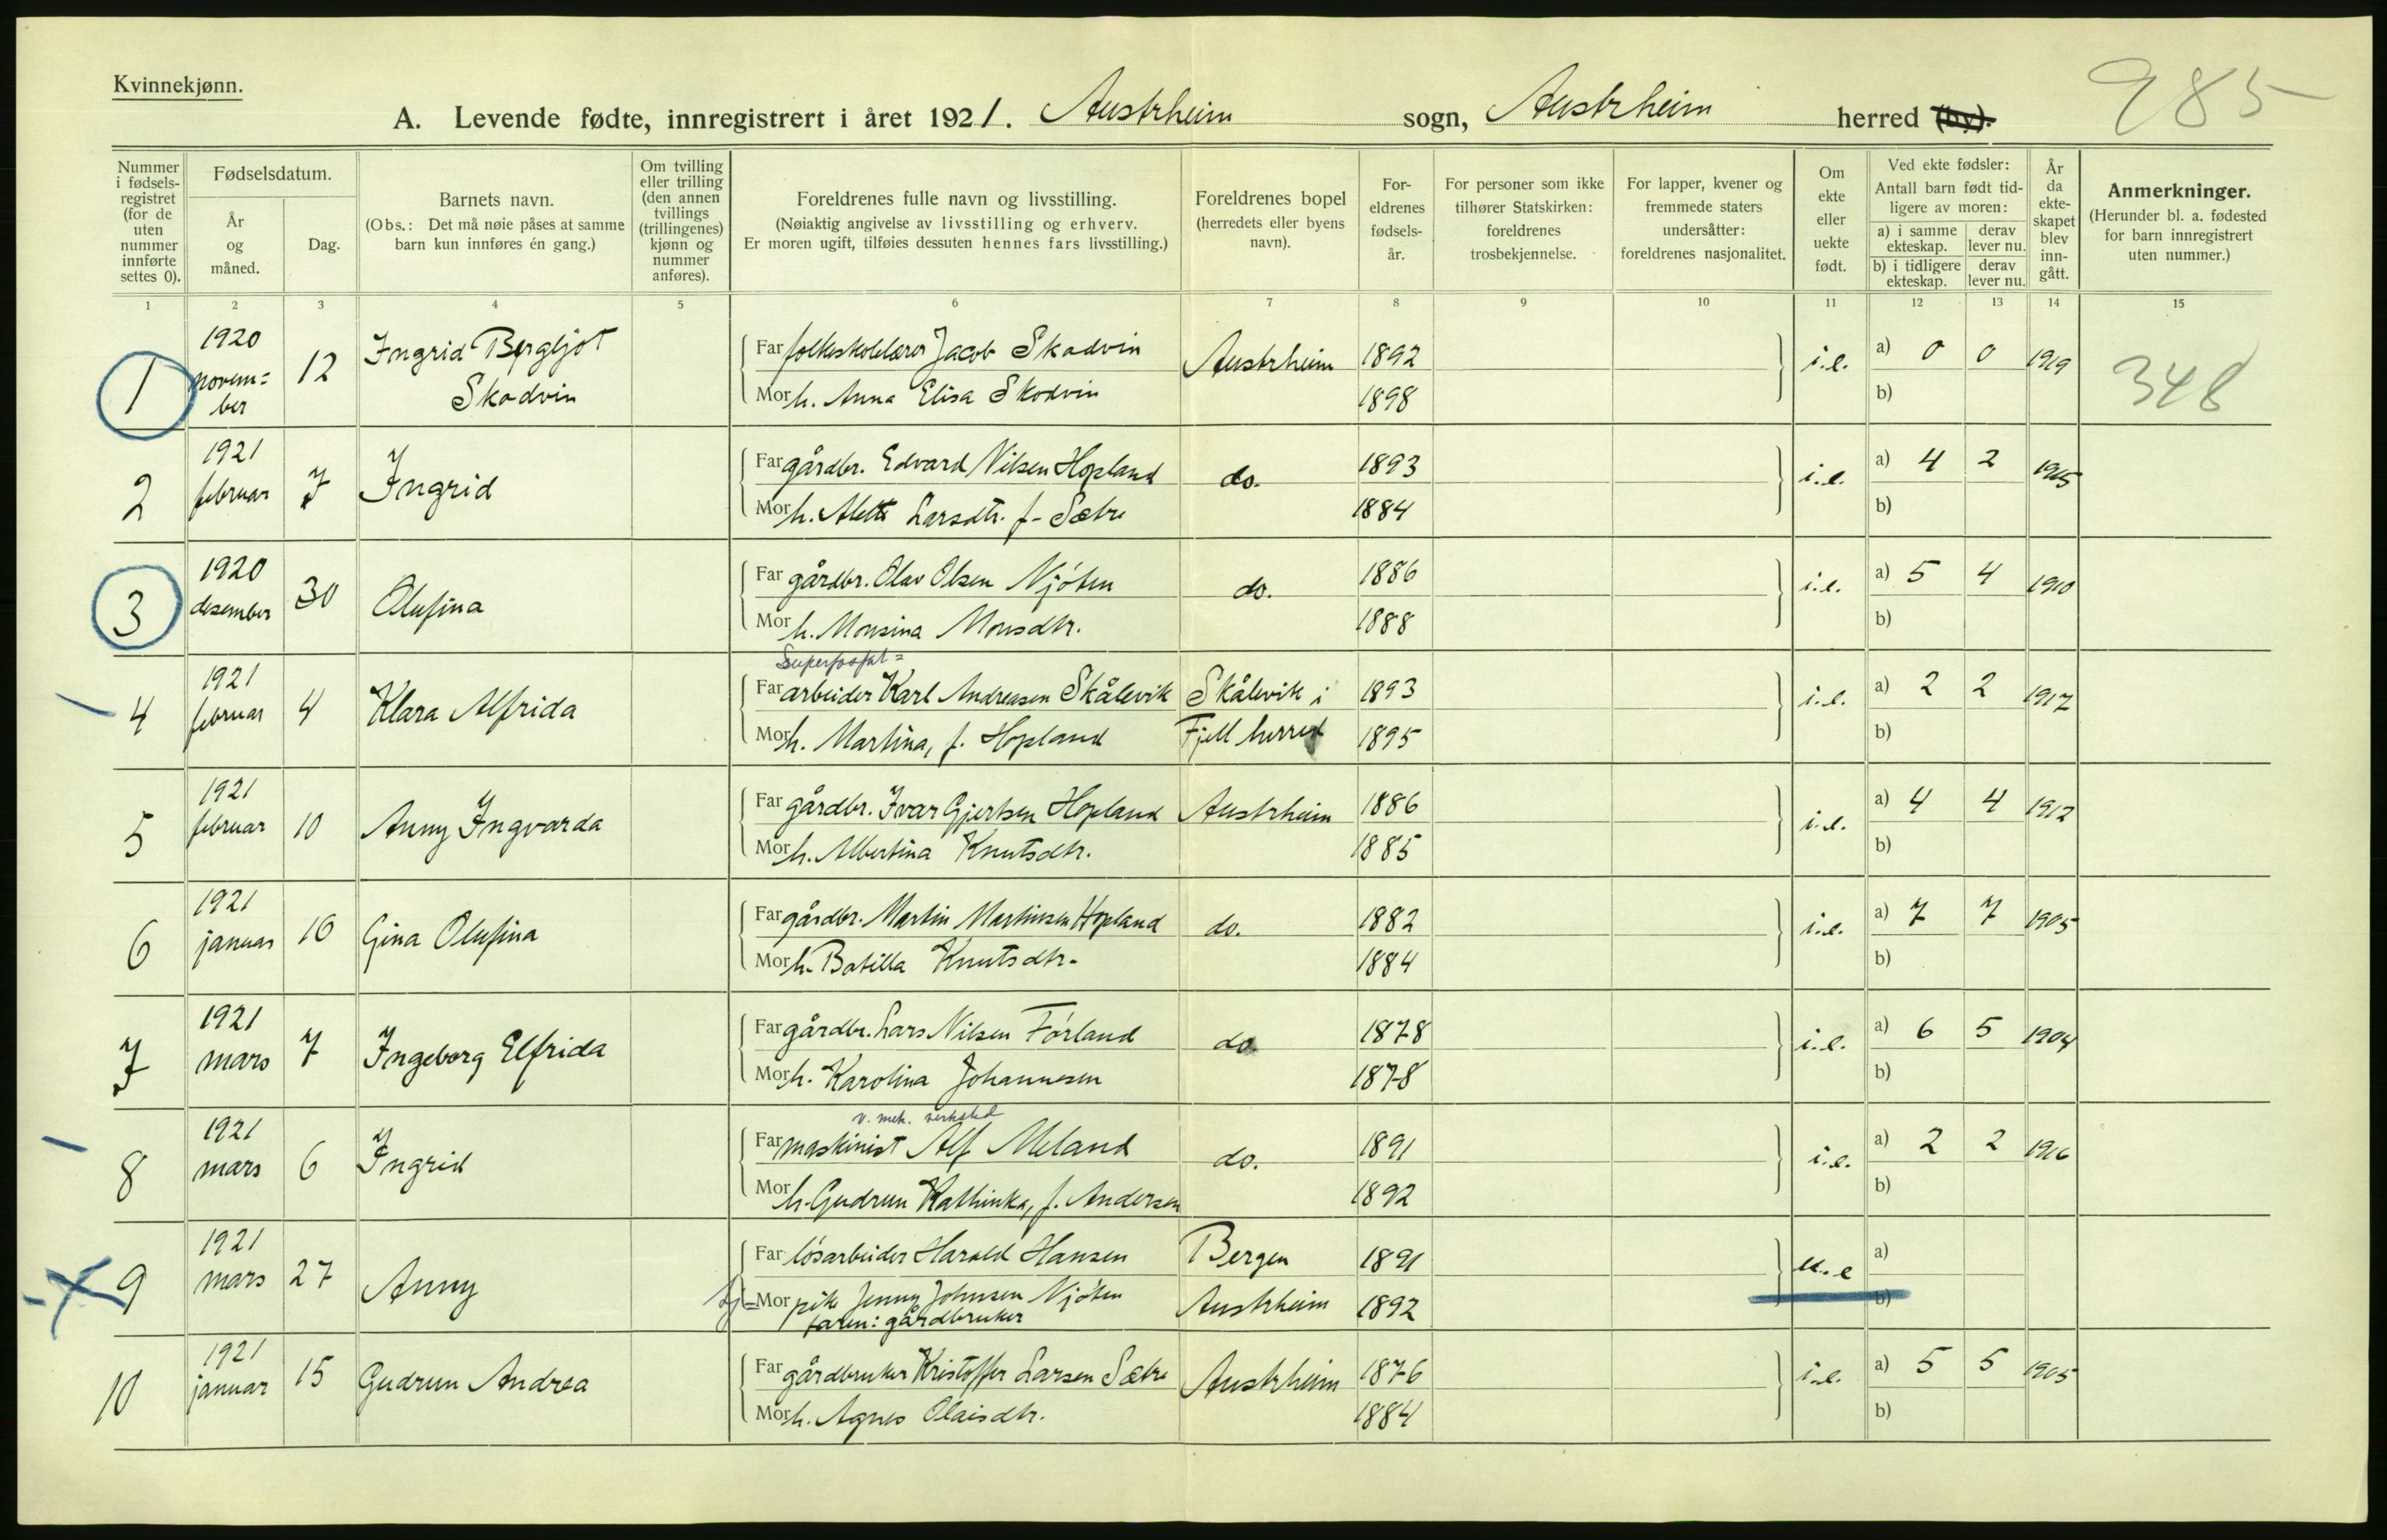 Kvinnekjønn.
A. Levende fødte, innregistrert i året 1921. Austrheim sogn, Austrheim herred (by).
985
Nummer i fødsels-registret (for de uten nummer innførte settes 0).
Fødselsdatum.
År og måned.
Dag.
Barnets navn.
(Obs.: Det må nøie påses at samme barn kun innføres én gang.)
Om tvilling eller trilling (den annen tvillings (trillingenes) kjønn og nummer anføres).
Foreldrenes fulle navn og livsstilling.
(Nøiaktig angivelse av livsstilling og erhverv.
Er moren ugift, tilføies dessuten hennes fars livsstilling.)
Foreldrenes bopel (herredets eller byens navn).
For-eldrenes fødsels-år.
For personer som ikke tilhører Statskirken: foreldrenes trosbekjennelse.
For lapper, kvener og fremmede staters undersåtter: foreldrenes nasjonalitet.
Om ekte eller uekte født.
Ved ekte fødsler:
Antall barn født tid-ligere av moren:
a) i samme ekteskap. derav lever nu.
b) i tidligere ekteskap. derav lever nu.
År da ekte-skapet blev inn-gått.
Anmerkninger.
(Herunder bl. a. fødested for barn innregistrert uten nummer.)
1 2 3 4 5 6 7 8 9 10 11 12 13 14 15
1 1920 novem=ber 12 Ingrid Bergljot Skodvin
Far folkeskolelærer Jacob Skodvin Austrheim 1892 i.e. a) 0 0 1919
Mor h. Anna Elisa Skodvin 1898 b)
348
2 1921 februar 7 Ingrid
Far gårdbr. Edvard Nilsen Hopland do. 1893 i.e. a) 4 2 1915
Mor h. Alette Larsdtr. f. Sætre 1884 b)
3 1920 desember 30 Olufina
Far gårdbr. Olav Olsen Njøten do. 1886 i.e. a) 5 4 1910
Mor h. Monsina Monsdtr. 1888 b)
Superfosfat=
4 1921 februar 4 Klara Alfrida
Far arbeider Karl Andreasen Skålevik Skålevik i 1893 i.e. a) 2 2 1917
Mor h. Martina, f. Hopland Fjell herred 1895 b)
5 1921 februar 10 Anny Ingvarda
Far gårdbr. Ivar Gjertsen Hopland Austrheim 1886 i.e. a) 4 4 1912
Mor h. Albertina Knutsdtr. 1885 b)
6 1921 januar 16 Gina Olufina
Far gårdbr. Martin Martinsen Hopland do. 1882 i.e. a) 7 7 1905
Mor h. Botilla Knutsdtr. 1884 b)
7 1921 mars 7 Ingeborg Elfrida
Far gårdbr. Lars Nilsen Førland do 1878 i.e. a) 6 5 1904
Mor h. Karolina Johannesen 1878 b)
v. mek. verksted
8 1921 mars 6 Ingrid
Far maskinist Alf Meland do. 1891 i.e. a) 2 2 1916
Mor h. Gudrun Kathinka, f. Andersen 1892 b)
9 1921 mars 27 Anny
Far løsarbeider Harald Hansen Bergen 1891 u.e a)
Mor pike Jenny Johnsen Njøten Austrheim 1892 b)
faren: gårdbruker
10 1921 januar 15 Gudrun Andrea
Far gårdbruker Kristoffer Larsen Sætre Austrheim 1876 i.e. a) 5 5 1905
Mor h. Agnes Olaisdtr. 1884 b)